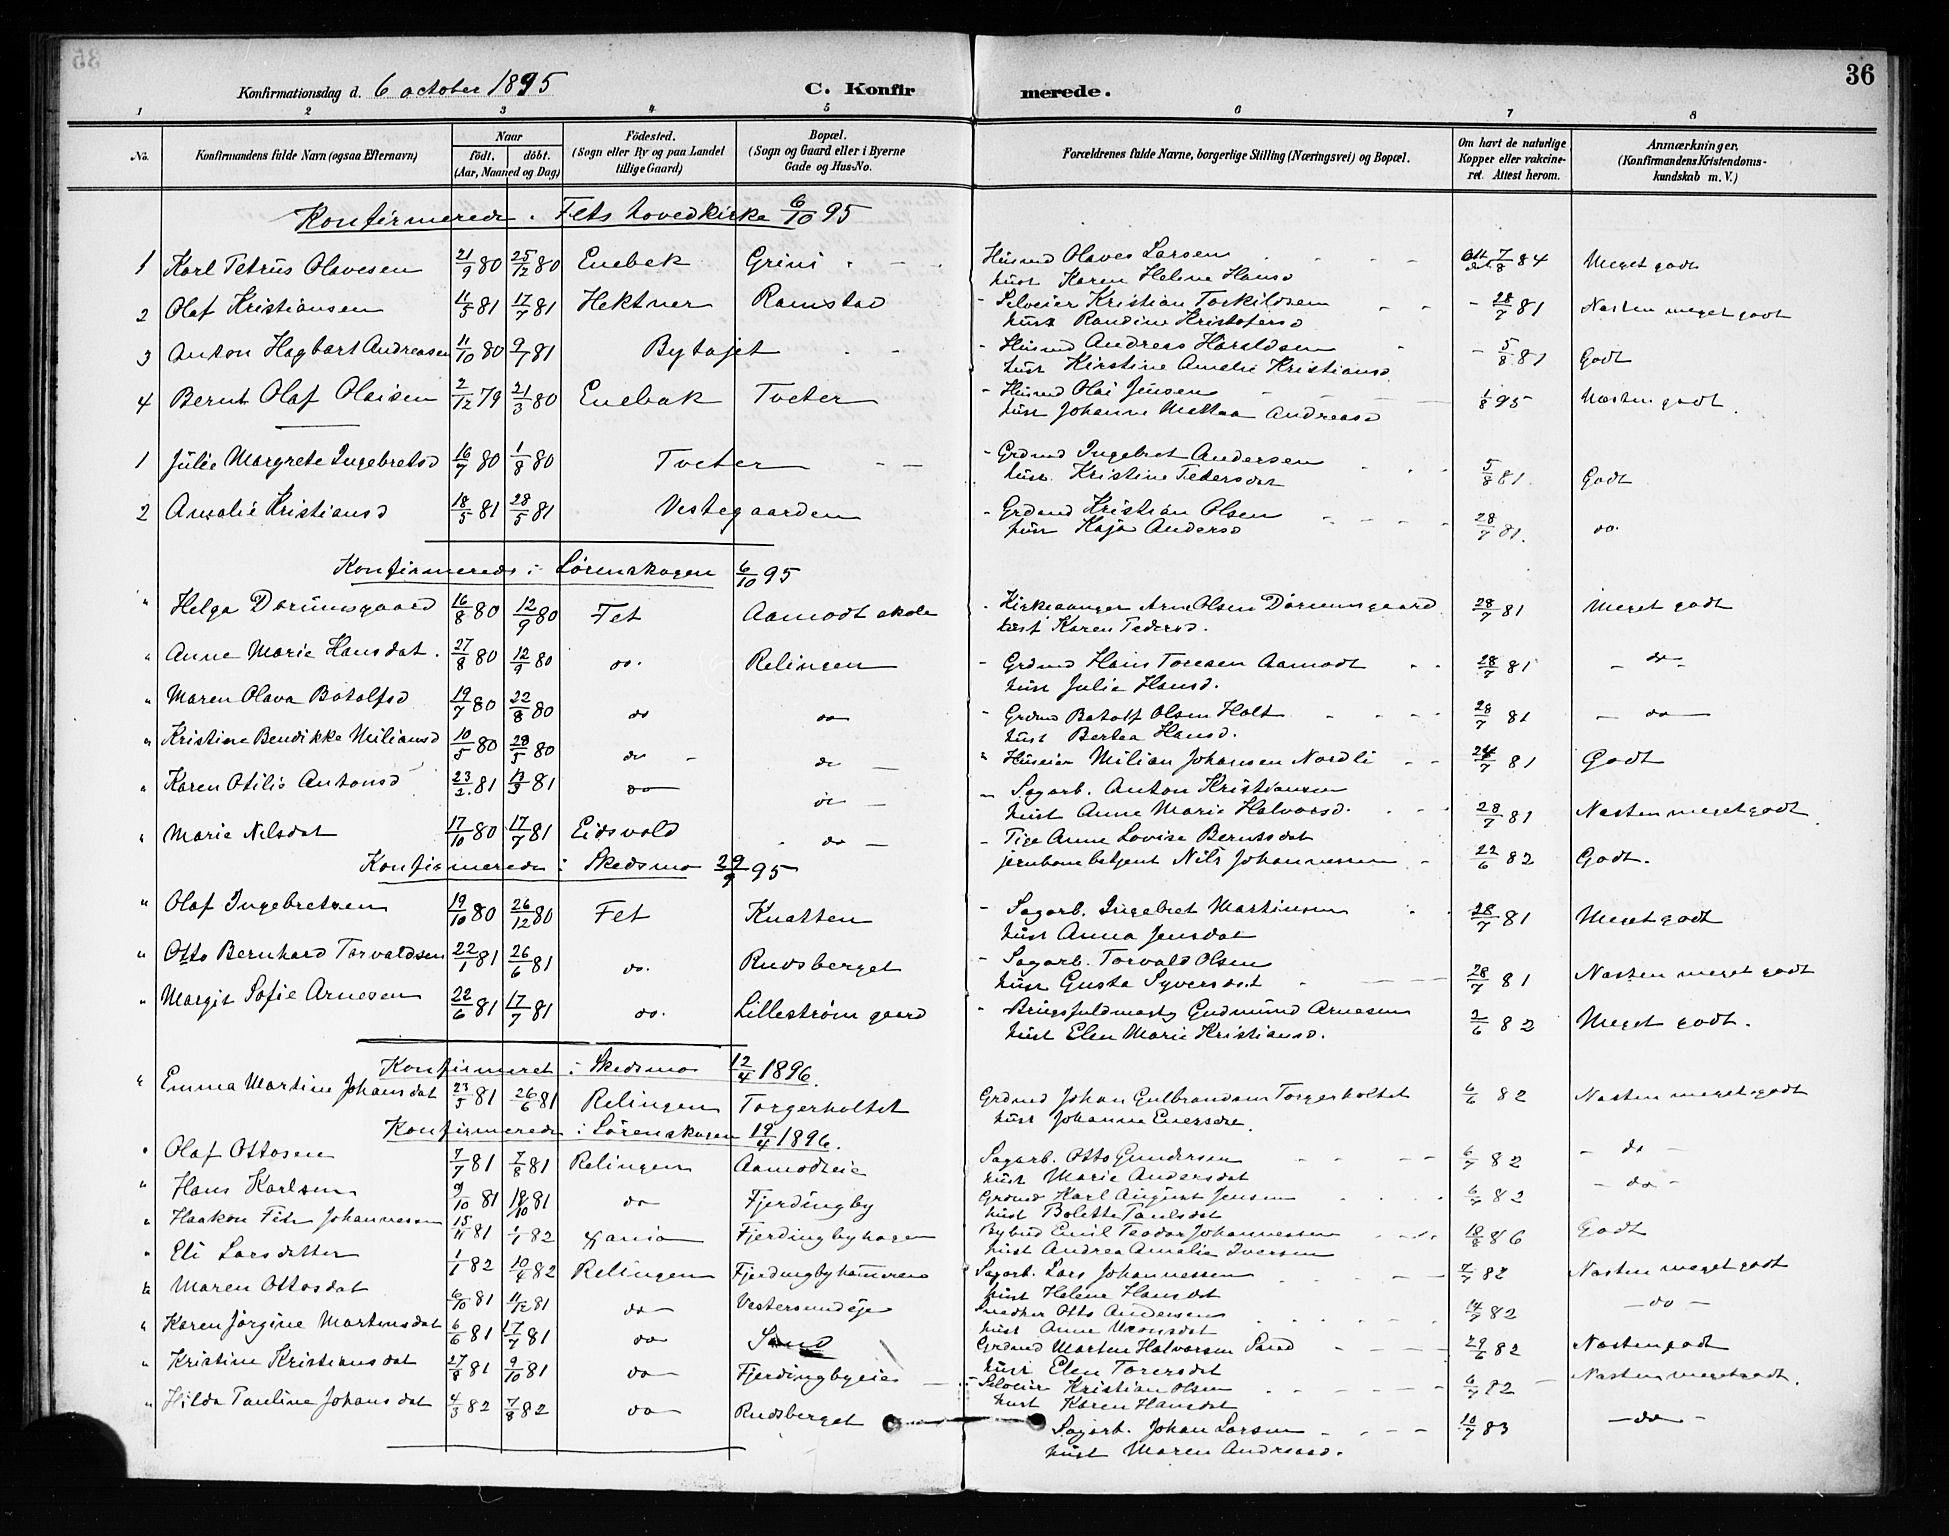 36
Konfirmationsdag d. 6 october 1895 C. Konfirmerede.
1 2 3 4 5 6 7 8
No. Konfirmandens fulde Navn (ogsaa Efternavn) Naar födt, döbt. (Aar, Maaned og Dag) Födested. (Sogn eller By og paa Landet tillige Gaard) Bopæl. (Sogn og Gaard eller i Byerne Gade og Hus-No. Forældrenes fulde Navne, borgerlige Stilling (Næringsvei) og Bopæl. Om havt de naturlige Kopper eller vakcineret. Attest herom. Anmærkninger. (Konfirmandens Kristendomskundskab m. V.)
Konfirmerede i Fets hovedkirke 6/10 95
1 Karl Petrus Olavesen 21/9 80 25/12 80 Enebak Grini Husmd Olaves Larsen 7/8 84 Meget godt
hust Karen Helene Hansd
2 Olaf Kristiansen 11/5 81 17/7 81 Hektner Ramstad - Selveier Kristian Torkildsen - 28/7 81 Næsten meget godt
hust Randine Kristofersd
3 Anton Hagbart Andreasen 11/10 80 9/7 81 Bytajet - Husmd Andreas Haraldsen - 5/8 81 Godt
hust Kirstine Amelie Kristiansd
4 Bernt Olaf Olaisen 2/12 79 21/3 80 Enebak Tveter - Husmd Olai Jensen 1/8 95 Næsten godt
hust Johanne Mathea Andreasd
1 Julie Margrete Ingebretsd 16/7 80 1/8 80 Tveter - Grdmd Ingebret Andersen 5/8 81 Godt
hust Kristine Pedersdat
2 Amalie Kristiansd 18/5 81 28/5 81 Vestegaarden - Grdmd Kristian Olsen 28/7 81. do.
hust Kaja Andersd
Konfirmerede i Lørenskogen 6/10 95
" Helga Dørumsgaard 16/8 80 12/9 80 Fet Aamodt skole - Kirkesanger Arn Olsen Dørumsgaard 28/7 81 Meget godt
hust Karen Pedersd.
" Anne Marie Hansdat. 27/8 80 12/9 80 do. Relingen - Grdmd Hans Toresen Aamodt 28/7 81 - do -
hust Julie Hansd.
" Maren Olava Botolfsd 19/7 80 22/8 80 do do - Grdmd Botolf Olsen Holt 28/7 81 - do -
hust Bertea Hansd.
" Kristine Bendikke Miliansd 10/5 80 28/5 80 do - do - " Huseier Milian Johansen Nordli 24/7 81 Godt
" Karen Otilie Antonsd 23/2 81 13/3 81 do do - - Sagarb. Anton Kristiansen
hust Anne Marie Halvorsd. 28/7 81 Næsten meget godt
" Marie Nilsdat 17/10 80 17/7 81 Eidsvold do - - Pige Anne Lovise Berntsdat
jernbanebetjent Nils Johannessen - 22/6 82 Godt.
Konfirmerede i Skedsmo 29/9 95
" Olaf Ingebretsen 19/10 80 26/12 80 Fet Knatten - Sagarb. Ingebret Martinsen 28/7 81 Meget godt
hust Anna Jensdat
" Otto Bernhard Torvaldsen 22/1 81 26/6 81 do. Rudsberget - Sagarb. Torvald Olsen
hust Gusta Syversdat 28/7 81 Næsten meget godt
" Margit Sofie Arnesen 22/6 81 17/7 81 do. Lillestrøm gaard - Brugsfuldmægtig Gudmund Arnesen 2/6 82 Meget godt.
hust Elen Marie Kristiansd.
Konfirmeret i Skedsmo 12/4 1896.
" Emma Martine Johansdat 23/5 81 26/6 81 Relingen Torgerholtet Grdmd Johan Gulbrandsen Torgerholtet 6/6 82 Næsten meget godt
hust Johanne
Konfirmerede i Lørenskogen 19/4 1896.
" Olaf Ottosen 7/7 81 7/8 81 Relingen Aamodteie Sagarb. Otto Gundersen 6/7 82 - do -
hust Marie Andersdat
" Hans Karlsen 9/10 81 18/10 81 do Fjerdingby Grdmd Karl August Jensen 6/7 82 - do -
hust Bolette Paulsdat
" Haakon Johannessen 15/11 81 1/1 82 Xania Fjerdingbyhagen Bybud Emil Teodor Johannessen 18/8 86 Godt
hust Andrea Amalie Iversen
" Eli Larsdatter 1/1 82 10/4 82 Relingen Sagarb. Lars Johannessen 7/7 82 Næsten meget godt
hust Helene Hansdat
" Maren Ottosdat 6/10 81 11/12 81 do Vestersundeje Snedker Otto Andersen 14/7 82 - do -
hust Anne
" Karen Jørgine Martinsdat 6/6 81 17/7 81 do Sand Grdmd Martin Halvorsen Sand 29/6 82 Næsten godt
hust Elen Toresdat
" Kristine Kristiansdat 27/8 81 9/10 81 do Fjerdingbyeie - Selveier Kristian Olsen 6/7 82 - Næsten meget godt.
hust Karen Hansdat
" Hilda Pauline Johansdat 4/3 82 7/8 82 do Rudsberget Sagarb. Johan Larsen 10/7 83 - do -
hust Maren Andreasd.